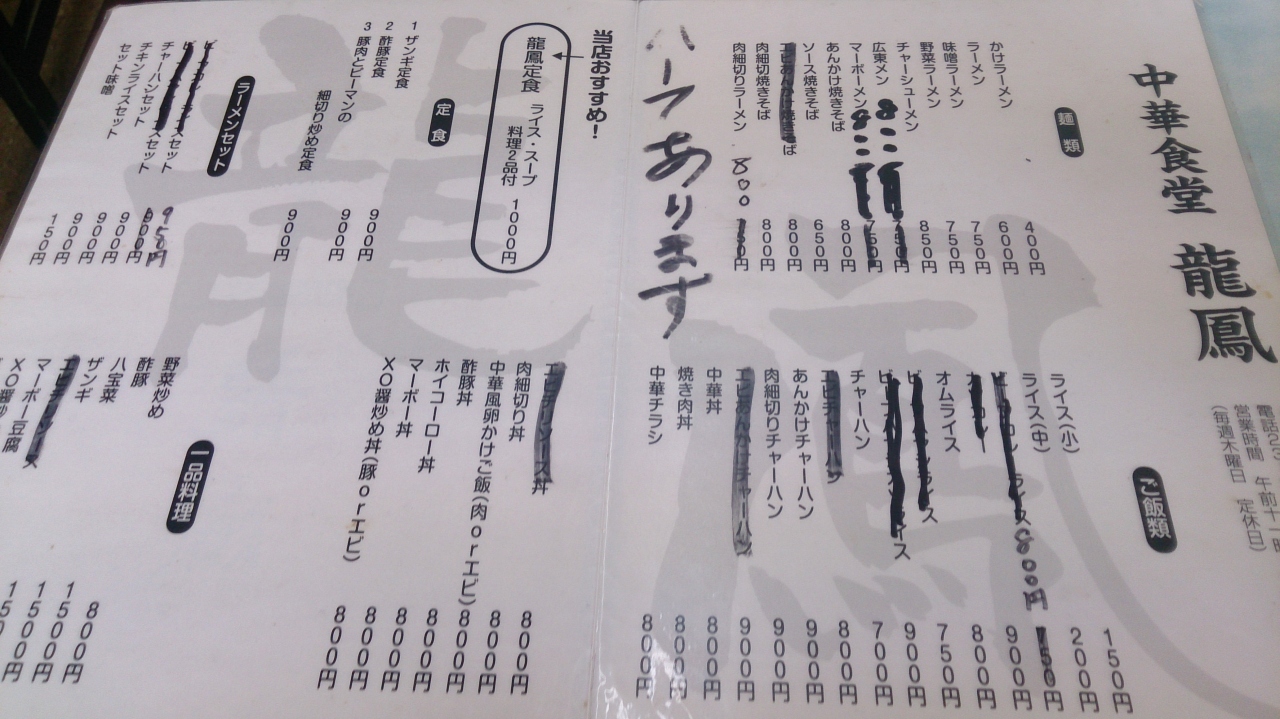 中華食堂 龍鳳
営業時間 午前十一時
(毎週木曜日 定休日)
麺類
かけラーメン 400円
ラーメン 600円
味噌ラーメン 750円
野菜ラーメン 750円
チャーシューメン 850円
広東メン
マーボーメン
あんかけ焼きそば 800円
ソース焼きそば 650円
エビあんかけ焼きそば 800円
肉細切焼きそば 800円
肉細切りラーメン 800
ハーフあります
ご飯類
ライス(小) 150円
ライス(中) 200円
ライス 800円
900円
オムライス
800円
750円
900円
700円
チャーハン
800円
エビチャーハン
あんかけチャーハン 900円
肉細切りチャーハン 900円
エビあんかけチャーハン 900円
中華丼 800円
焼き肉丼 800円
中華チラシ 800円
当店おすすめ!
龍鳳定食 ライス・スープ 料理2品付 1000円
定食
1 ザンギ定食 900円
2 酢豚定食 900円
3 豚肉とピーマンの
細切り炒め定食 900円
エビチリソース丼
肉細切り丼 800円
中華風卵かけご飯(肉orエビ) 800円
酢豚丼 800円
ホイコーロー丼 800円
マーボー丼 800円
XO醤炒め丼(豚orエビ) 800円
800円
ラーメンセット
セット 950円
チャーハンセット 900円
チキンライスセット 900円
セット味噌 150円
一品料理
野菜炒め 800円
酢豚 1500円
八宝菜 1500円
ザンギ
エビチリソース
マーボー豆腐
XO醤炒